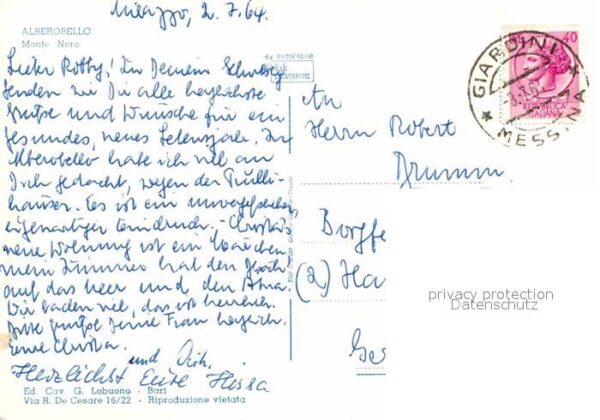 Milazzo, 2.7.64.
ALBEROBELLO
Monte Nero
Lieber Robby! Zu Deinem
senden wir Dir alle herzlichste
Grüsse und Wünsche für ein
gesundes, neues Lebensjahr. In
Alberobello habe ich viel an
Dich gedacht, wegen der Trulli-
häuser. Es ist ein unvergesslich
eigenartiger Eindruck. - Christas
neue Wohnung ist ein
mein Zimmer hat den
auf das Meer und den Ätna
Wir baden viel, das ist herrlich.
Bitte grüsse Deine Frau herzlich.
Deine Christa.
und Dich.
Herzlichst Eure
Ed. Cav. G. Lobuono - Bari
Via R. De Cesare 16/22 - Riproduzione vietata
FOTOCOLOR
40
ITALIANE
GIARDINI
MESSINA
An
Herrn Robert
Drumm.
Burgfe
(2) Ha
privacy protection
Datenschutz